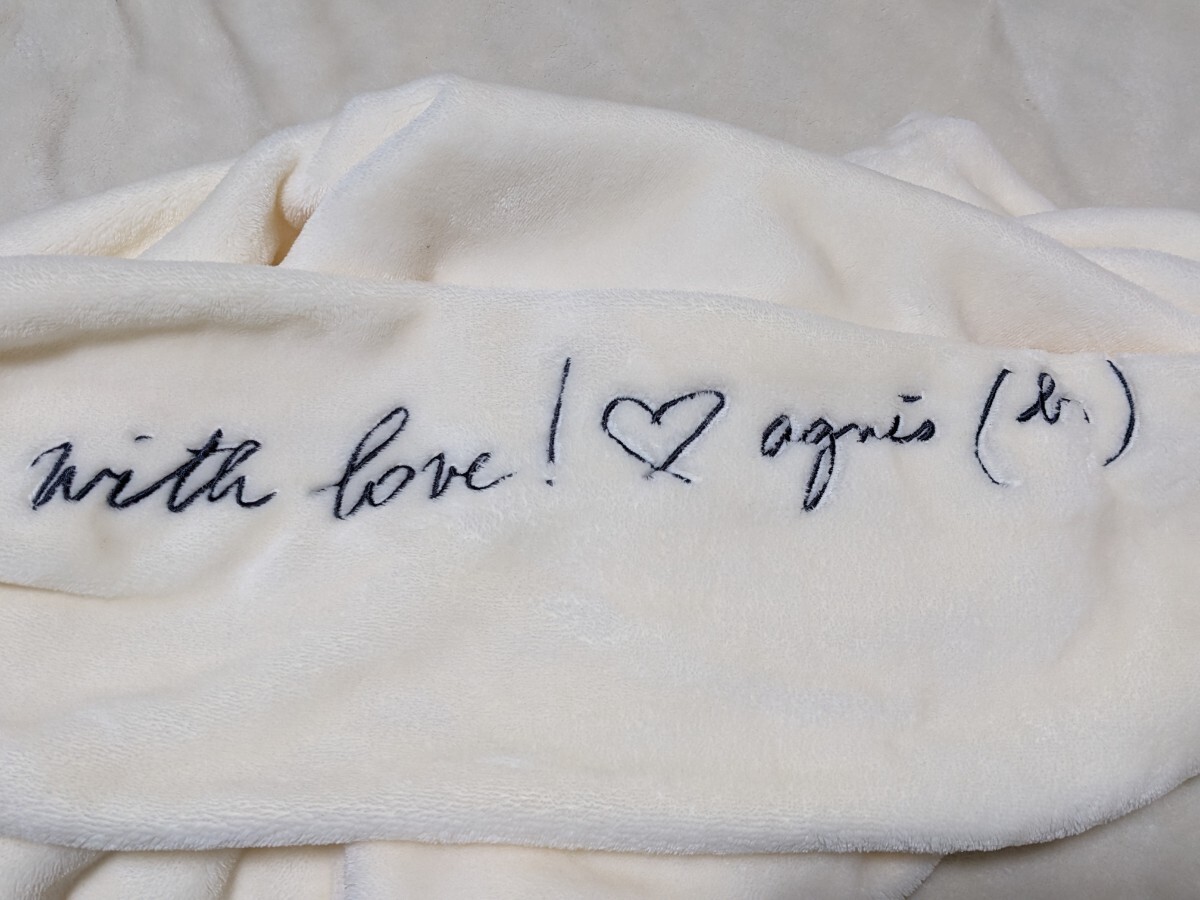 with love! ♡ agnès (b.)